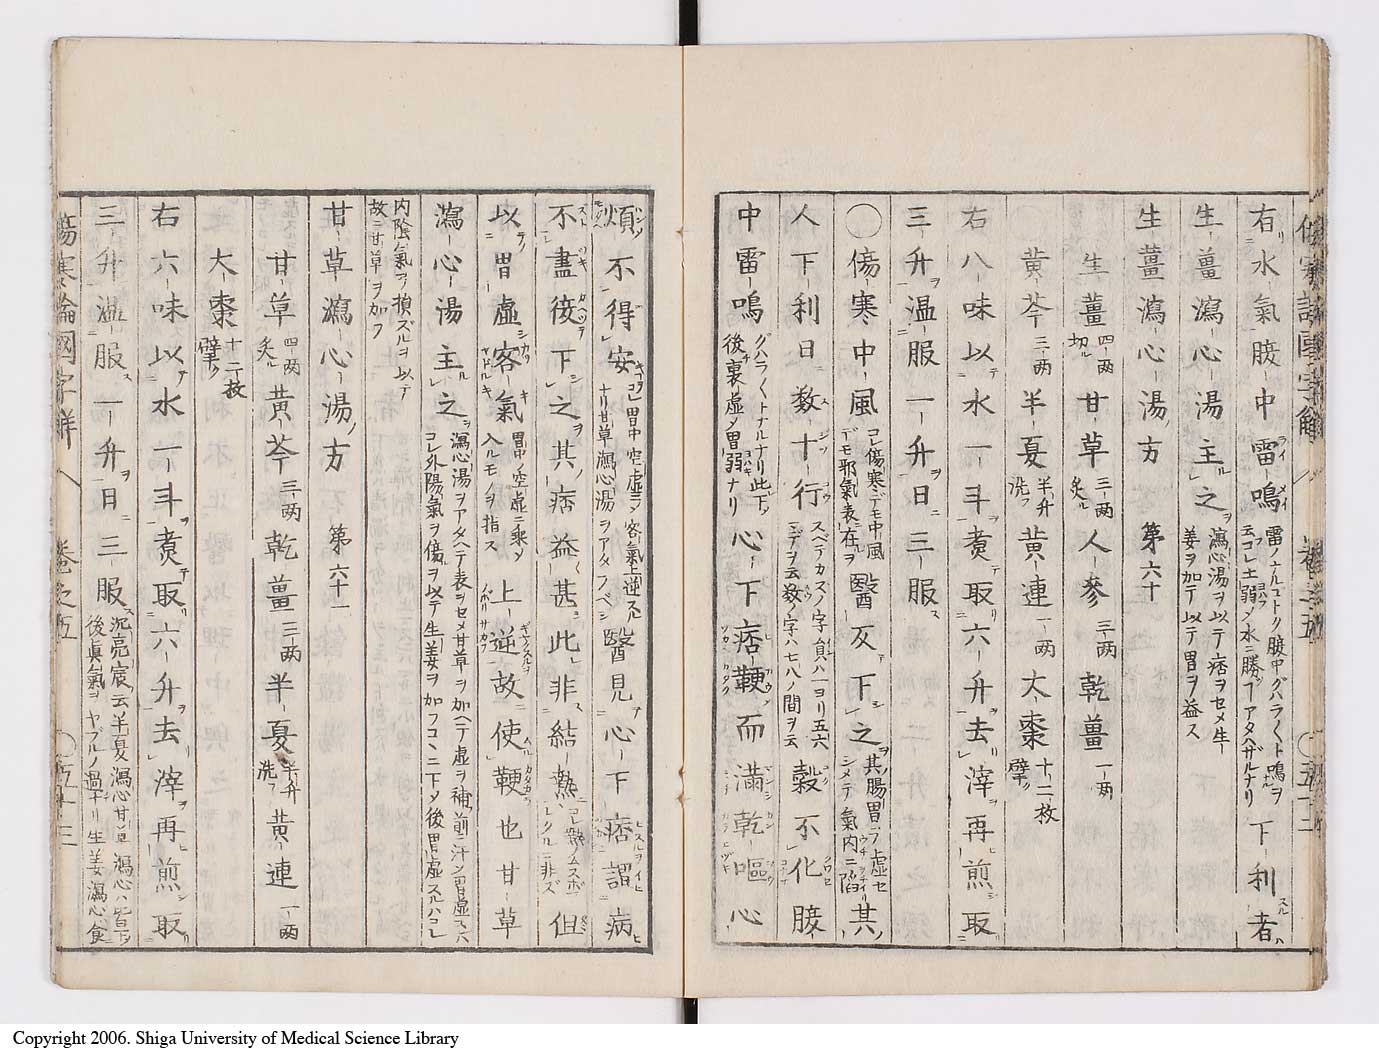 傷寒論國字解 卷之五 〇五十二
右水氣腹中雷鳴 雷ノナルゴトク腹中グハラ〱ト鳴ヲ云コレ土弱ノ水ニ勝コアタハザルナリ 下利者
生薑瀉心湯主之 瀉心湯ヲ以テ痞ヲセメ生姜ヲ加テ以テ胃ヲ益ス
生薑瀉心湯方 第六十
生薑 四兩切 甘草 三兩炙 人參 三兩 乾薑 一兩
黄芩 三兩 半夏 半升洗 黄連 一兩 大棗 十二枚擘
右八味以水一斗煮取六升去滓再煎取
三升温服一升日三服
〇傷寒中風 コレ傷寒デモ中風デモ邪氣表ニ在ヲ 醫反下之 其腸胃ヲ虚セシメテ氣内ニ陷 其
人下利日數十行 スベテカズノ字 穀不化腹
中雷鳴 グハラ〱トナルナリ此下後裏虚メ胃弱ナリ 心下痞鞕而滿乾嘔心
煩不得安 胃中空虚ヲメ客氣上逆スルナリ甘草瀉心湯ヲアタフベシ 醫見心下痞謂病
不盡後下之其痞益甚此非結熱 熱ムスボレクルニ非ズ 但
以胃虚客氣 胃中ノ空虚ニ乘メ入ルモノヲ指ス 上逆故使鞕也甘草
瀉心湯主之 瀉心湯ヲアタヘテ表ヲセメ甘草ヲ加ヘテ虚ヲ補 コレ外陽氣ヲ傷ヲ以テ生姜ヲ加フコヽニ下メ後胃虚スルハコレ
内陰氣ヲ損ズルヲ以テ故ニ甘草ヲ加フ
甘草瀉心湯方 第六十一
甘草 四兩炙 黄芩 三兩 乾薑 三兩 半夏 半升洗 黄連 一兩
大棗 十二枚擘
右六味以水一斗煮取六升去滓再煎取
三升温服一升日三服 沉亮宸云半夏瀉心甘草瀉心ハ皆下後眞氣ヲヤブルノ過ナリ生姜瀉心ハ食
傷寒論國字解 卷之五 〇五十三
Copyright 2006. Shiga University of Medical Science Library